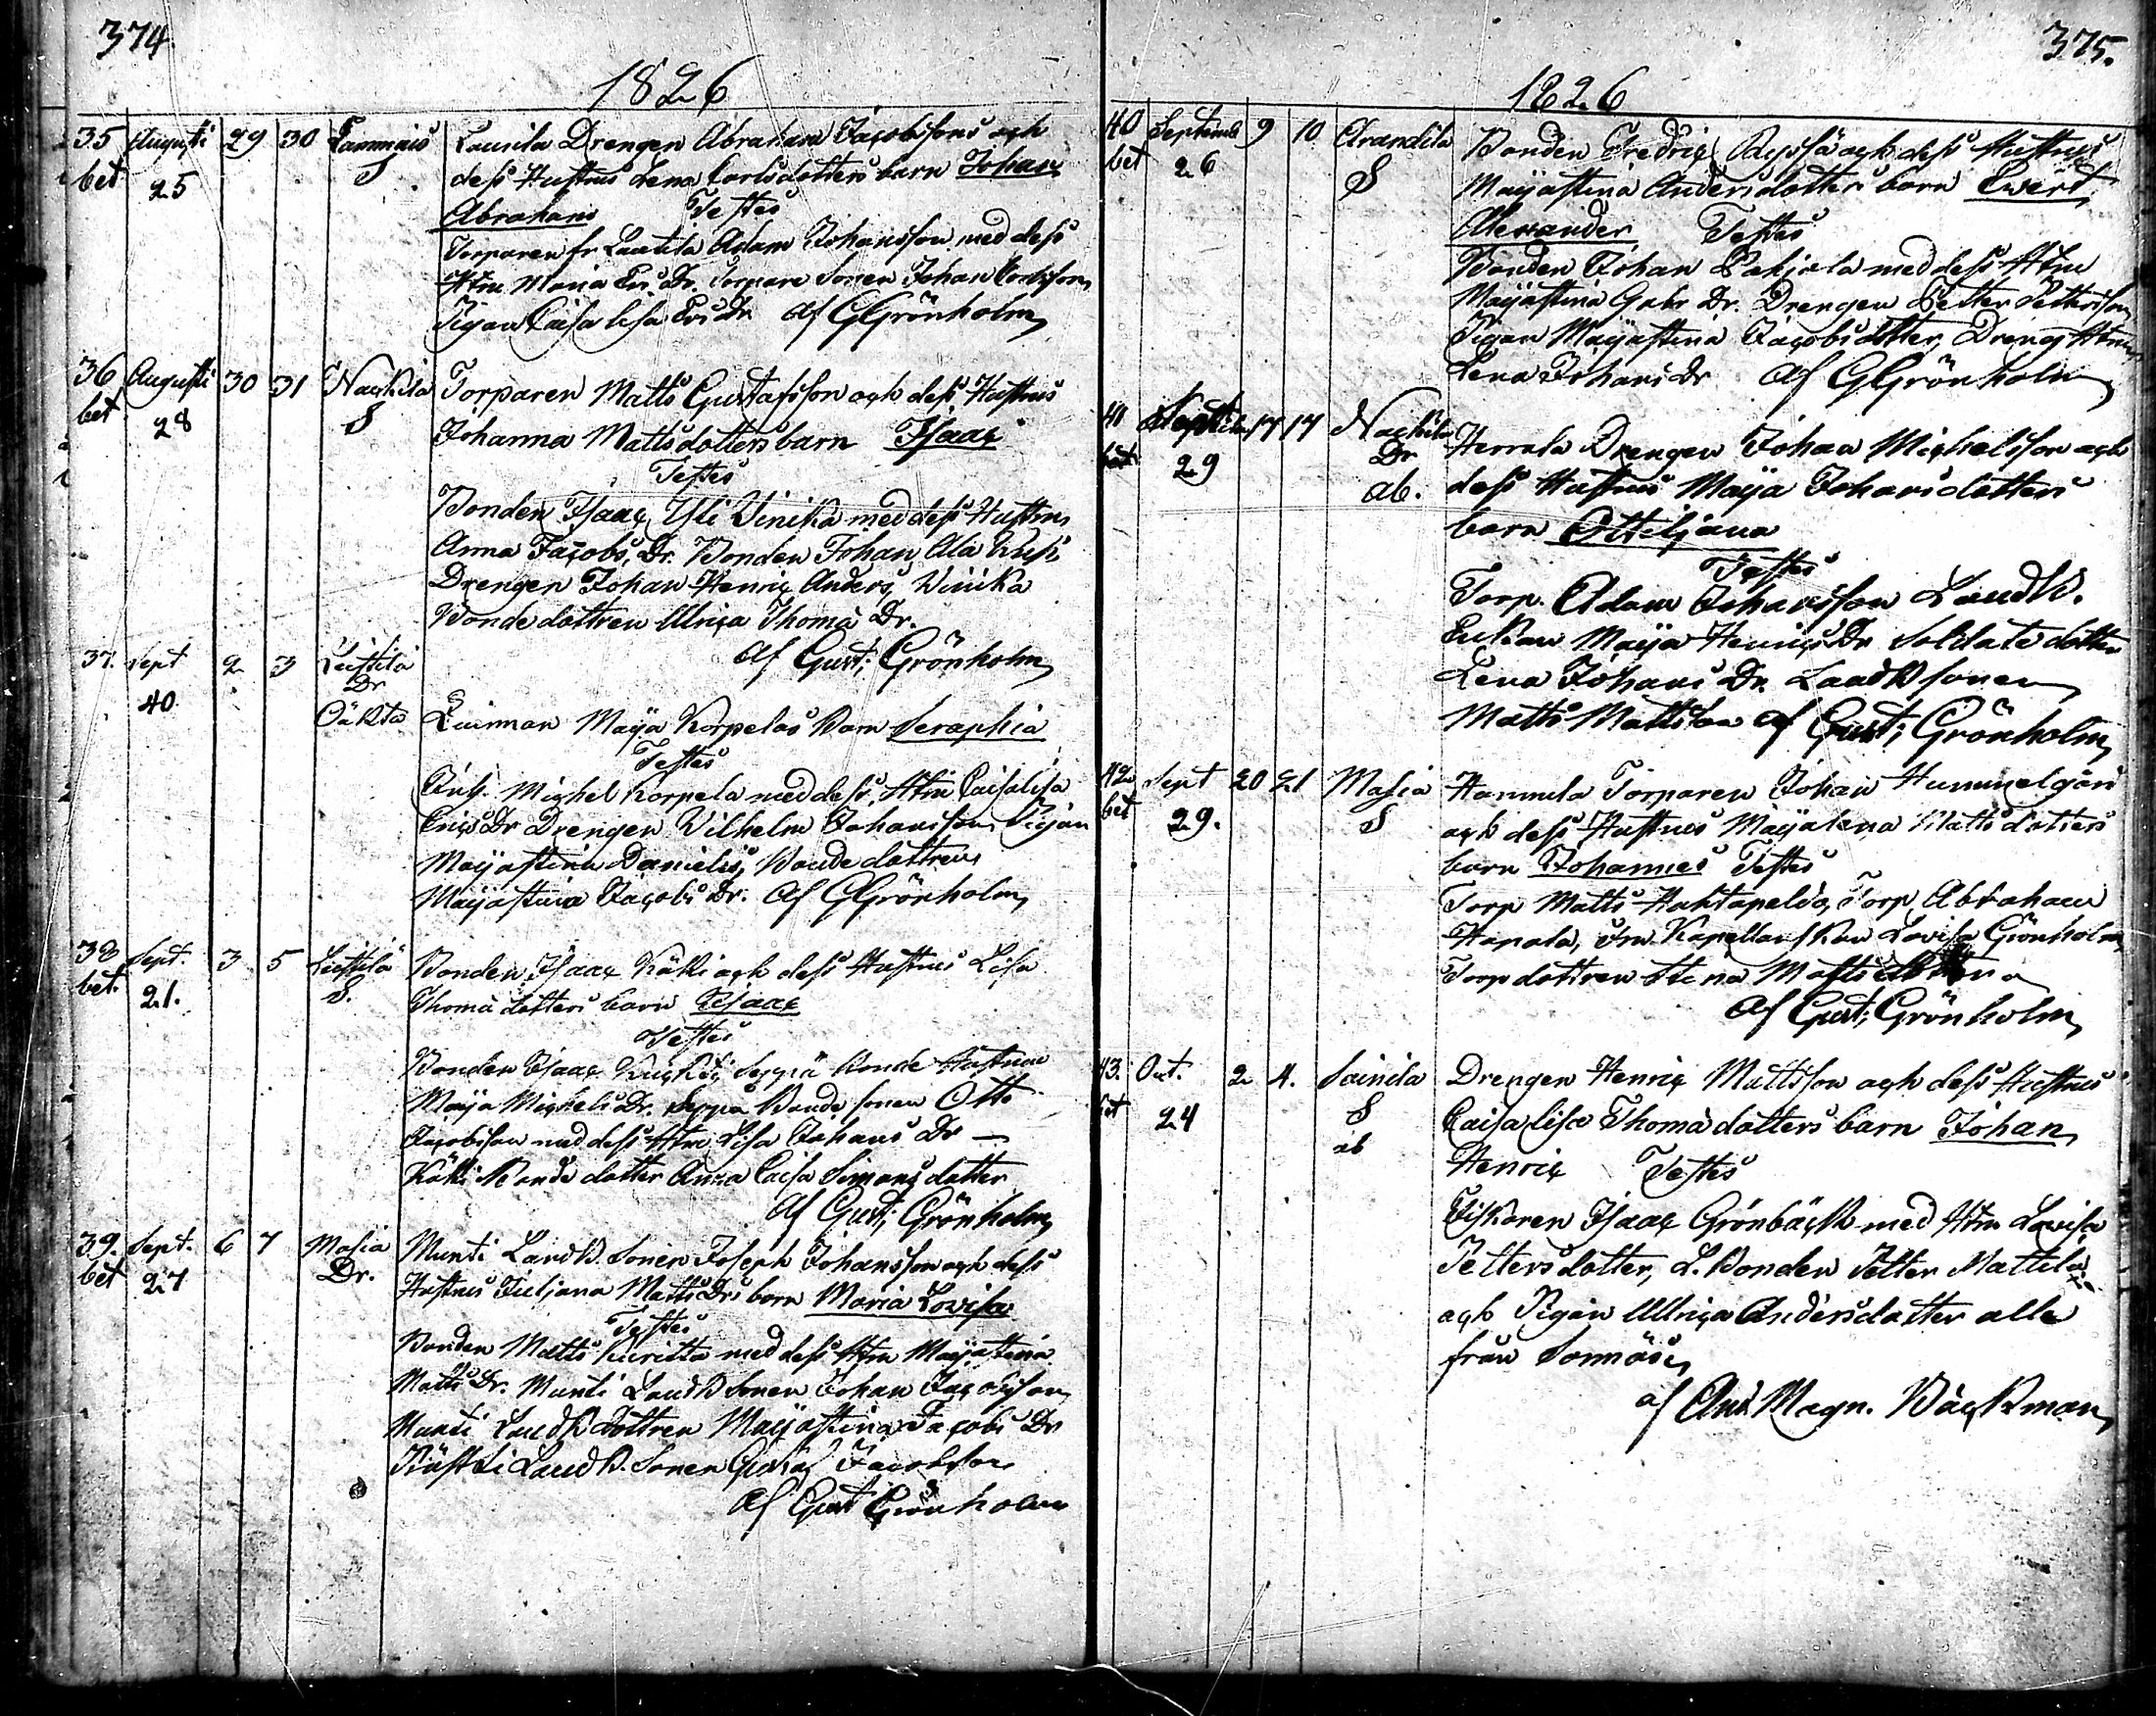 374
1826
35 Augusti 29 30 Lammais Launila Drengen Abraham Jacobssons och
bet 25 S dess Hustrus Lena Carlsdotters barn Johan
Abraham Testes
Torparen fr Laatila Adam Johansson med dess
Hru Maria Er. Dr. Torpare Sonen Johan
Pigan Caisa Lisa Ers Dr af GGrönholm
36 Augusti 30 31 Nackila Torparen Matts Gustafsson och dess Hustrus
bet 28 S Johanna Mattsdotters barn Isaac
Testes
Bonden Isaac Yli Vinika med dess Hustru
Anna Jacobs Dr. Bonden Johan Ala
Drengen Johan Henric Anders Vinika
Bonde dottren Ulrica Thoma Dr.
af Gust; Grönholm
37. Sept 2 3 Leistilä
40 Dr
Oäkta Quinnan Maja Korpelas Barn Seraphia
Testes
Michel Korpela med dess Hru Caisalisa
Erics Dr Drengen Vilhelm Johansson Pigan
Majastina Daniels, Bonde dottren
Majastina Jacobs Dr. af GGrönholm
38 Sept. 3 5 Leistilä Bonden Isaac Kåkki och dess Hustrus Lisa
bet. 21. S. Thomä dotters barn Isaac
Testes
Bonden Isaac Seppä Bonde Hustrun
Maja Michels Dr. Seppä Bonde sonen Otto
Jacobsson med dess Hru Lisa Johans Dr —
Kåkki Bonde dotter Anna Caisa Simons dotter
af Gust; Grönholm
39. Sept. 6 7 Masia Munti Landb. Sonen Joseph Johansson och dess
bet 27 Dr. Hustrus Juljana Matts Drs barn Maria Lovisa
Testes
Bonden Matts Kuritta med dess Hru Majastina
Matts Dr. Munti Landb Sonen Johan Jacobsson
Munti Landb Dottren Majastina Jacobs Dr
Landb. Sonen Jacobsson
af Gust Grönholm
375.
1826
40 Septemb 9 10 Anandila Bonden Fredric och dess Hustrus
bet 26 S Majastina Andersdotters barn Ewert
Alexander Testes
Bonden Johan Pohjola med dess Hru
Majastina Gabr Dr. Drengen Petter Pettersson
Pigan Majastina Jacobs dotter, Dreng Hrun
Lena Johans Dr af GGrönholm
41 Septemb 17 17 Nackila Herrala Drengen Johan Michelsson och
bet 29 Dr
ab. dess Hustrus Maja Johansdotters
barn Ottiljana
Testes
Torp. Adam Johansson Landb.
Enkan Maja Henrics Dr Soldate dotter
Lena Johans Dr. Landb sonen
Matts Mattsson af Gust; Grönholm
42 Sept 20 21 Masia Hannula Torparen Johan Hummelgårds
bet 29. S och dess Hustrus Majalena Matts dotters
barn Johannes Testes
Torp Matts Huhtapeldo, Torp Abraham
Hapala, Fru Kapellanskan Lovisa Grönholm
Torp dottren Stina Matts dotter
af Gust; Grönholm
43. Oct. 2 4. Sainila Drengen Henric Mattsson och dess Hustrus
bet 24 S Caisa Lisa Thomä dotters barn Johan
ab Henric Testes
Fiskaren Isaac Grönbäck med Hru Lovisa
Pettersdotter, L. Bonden Petter Mattila
och Pigan Ullrica Andersdotter alla
från Sonnäs
af And. Magn. Bäckman